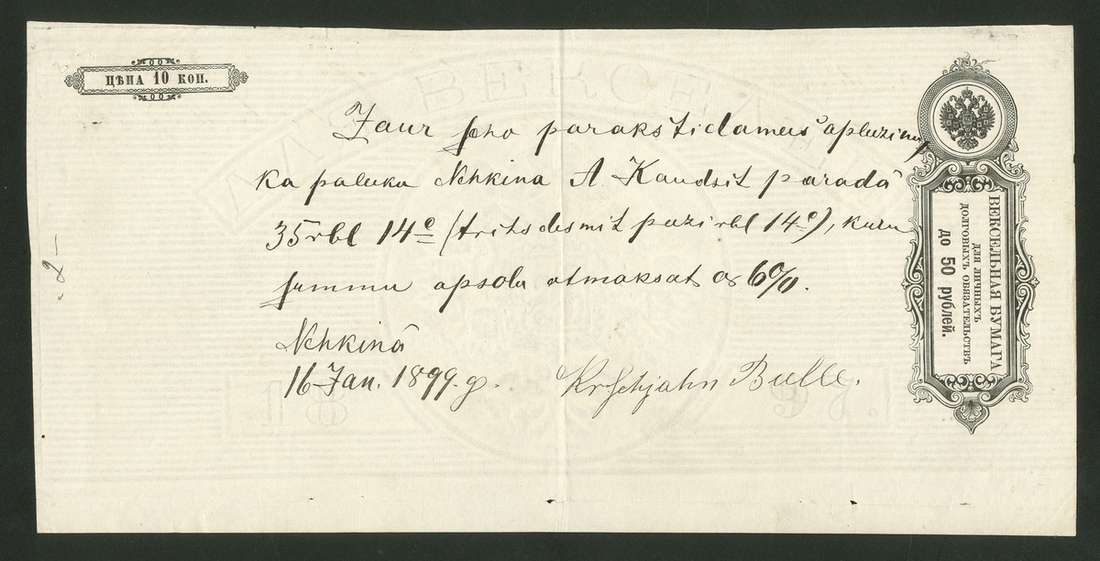 ЦѢНА 10 КОП.
Zaur scho parakstidamees apleezinu,
ka paleeku Nehkina A. Kaudsit parada
35 rbl 14 c (trihsdesmit peezi rbl 14 c), kuru
summu apsolu atmaksat as 6%.
Nehkinâ
16 Jan. 1899. g. Krschjahn Bulle.
- 2 -
ВЕКСЕЛЬНАЯ БУМАГА
для личныхъ
долговыхъ обязательствъ
до 50 рублей.